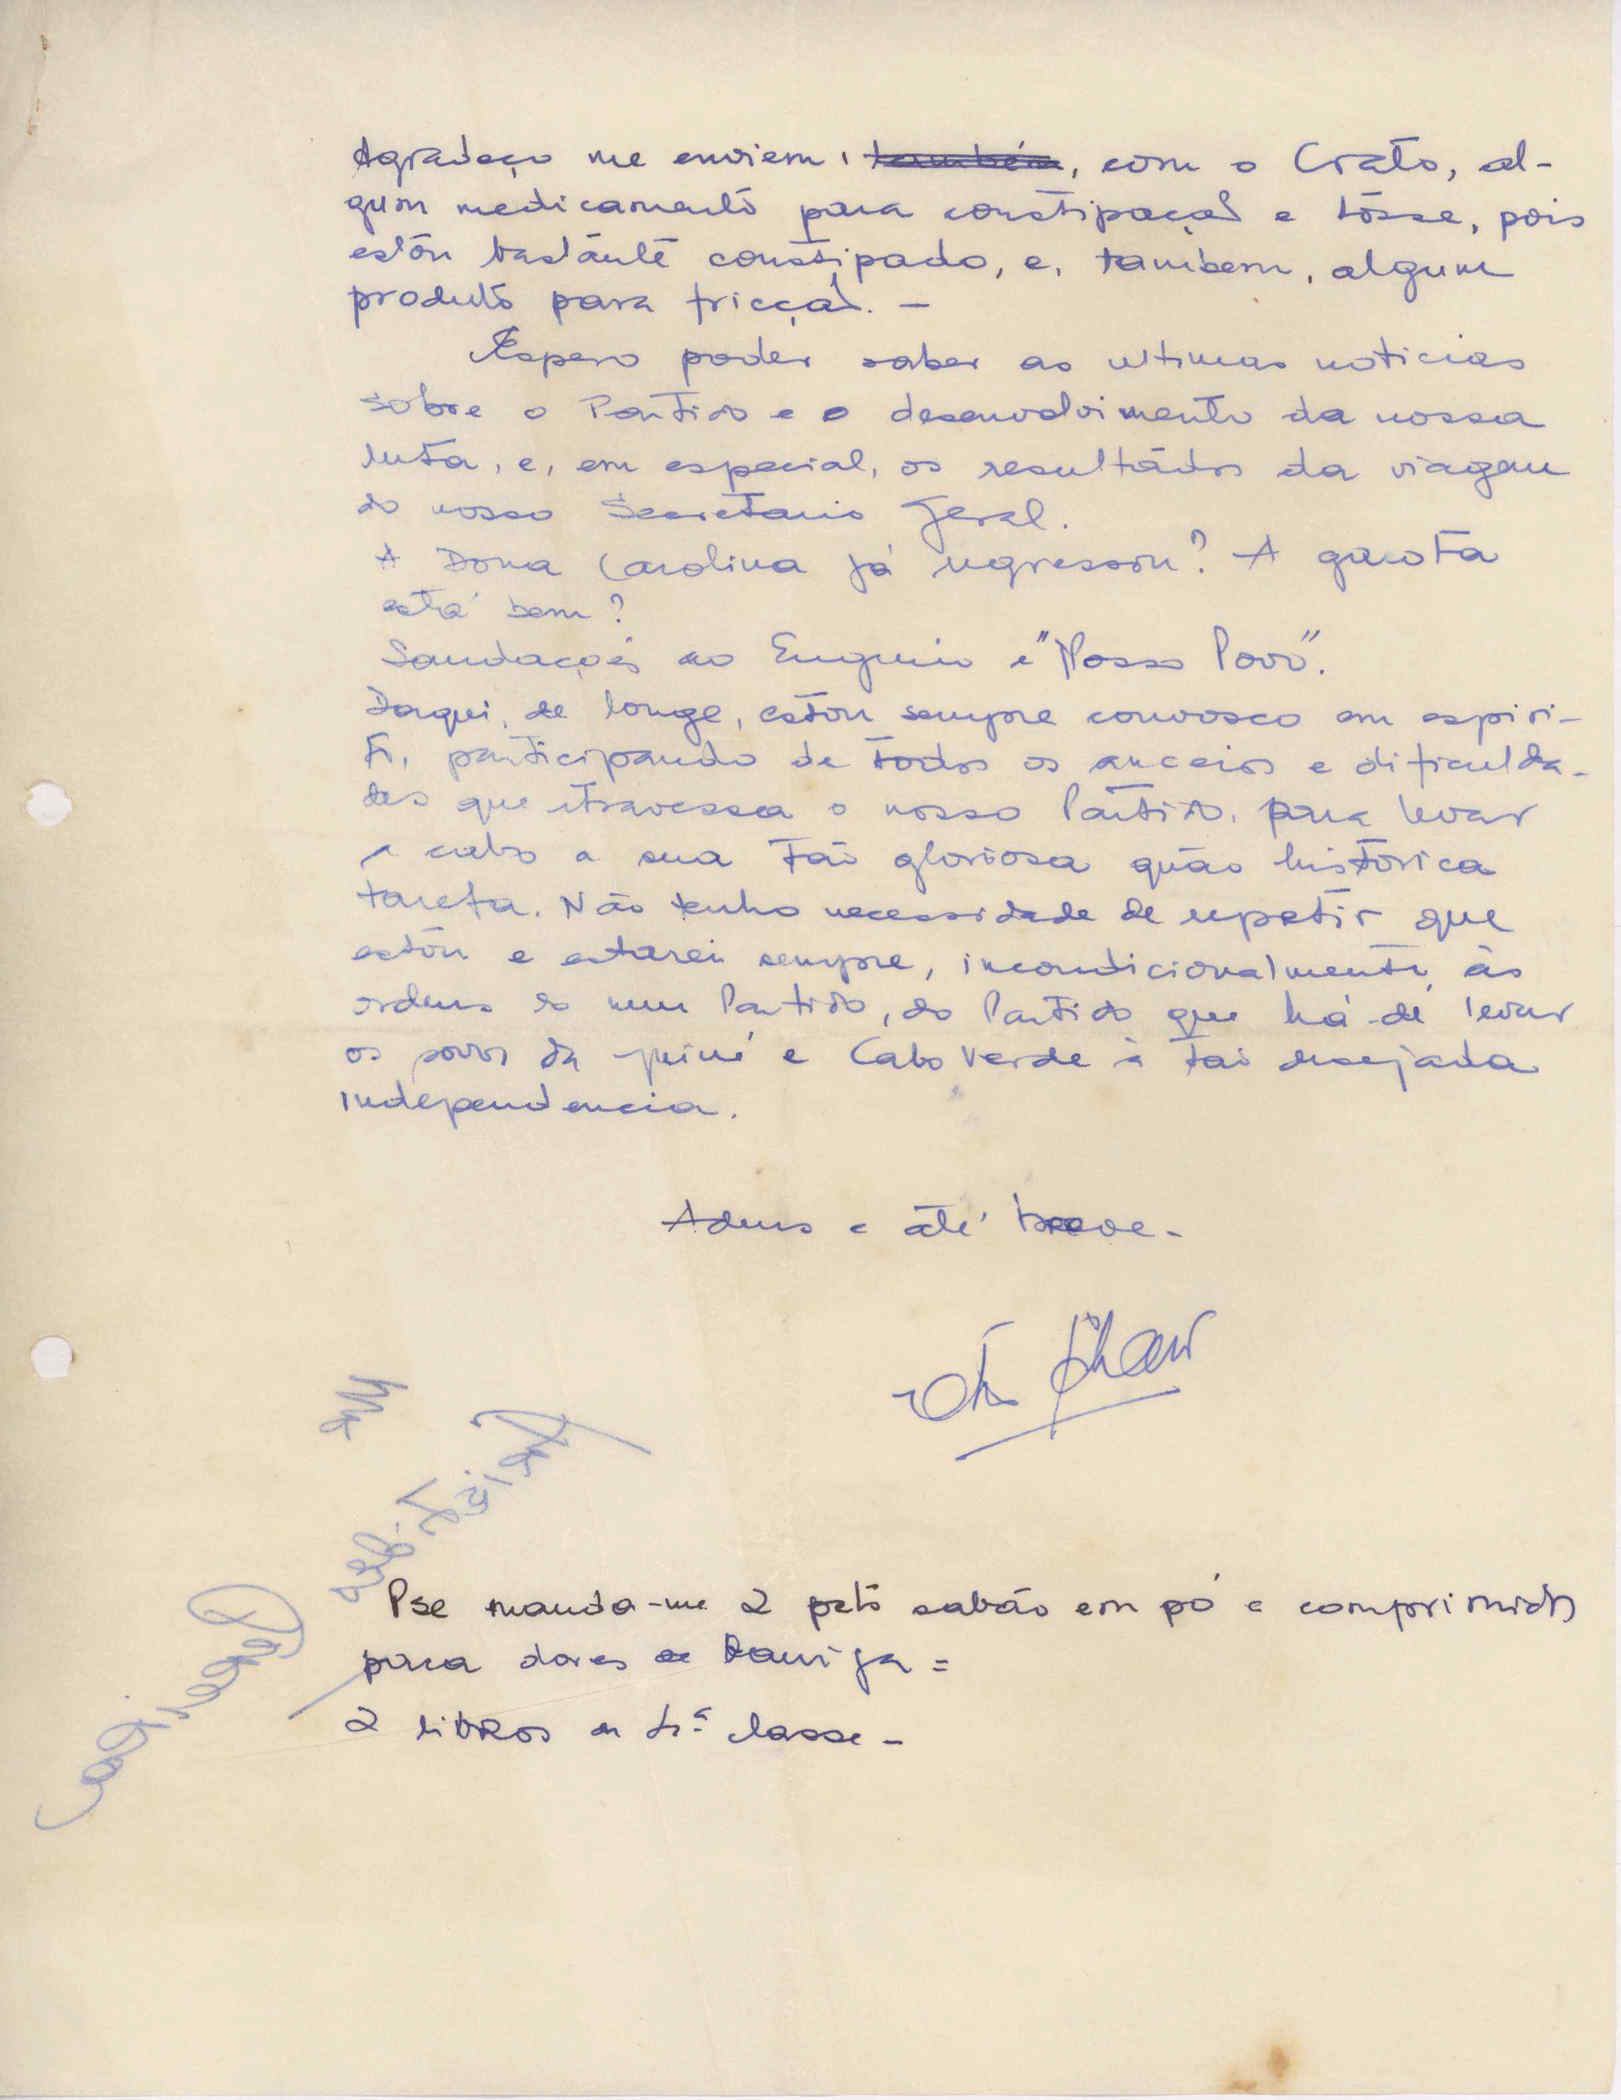 Agradeço me enviem, também, com o Crato, al-
gum medicamento para constipação e tósse, pois
estou bastante constipado, e, tambem, algum
produto para fricção. -
Espero poder saber as ultimas noticias
sobre o Partido e o desenvolvimento da nossa
luta, e, em especial, os resultados da viagem
do nosso Secretario Geral.
A Dona Carolina já regressou? A garota
está bem?
Saudações ao Eugenio e "Nosso Povo".
Daqui, de longe, estou sempre convosco em espiri-
to, participando de todos os anceios e dificulda-
des que atravessa o nosso Partido, para levar
a cabo a sua tão gloriosa quão histórica
tarefa. Não tenho necessidade de repetir que
estou e estarei sempre, incondicionalmente, às
ordens do meu Partido, do Partido que há-de levar
os povos da Guiné e Cabo Verde à tão desejada
independencia.
Adeus e até breve -
Pse manda-me 2 pcts sabão em pó e comprimidos
para dores de barriga =
2 libros de 1ª classe -